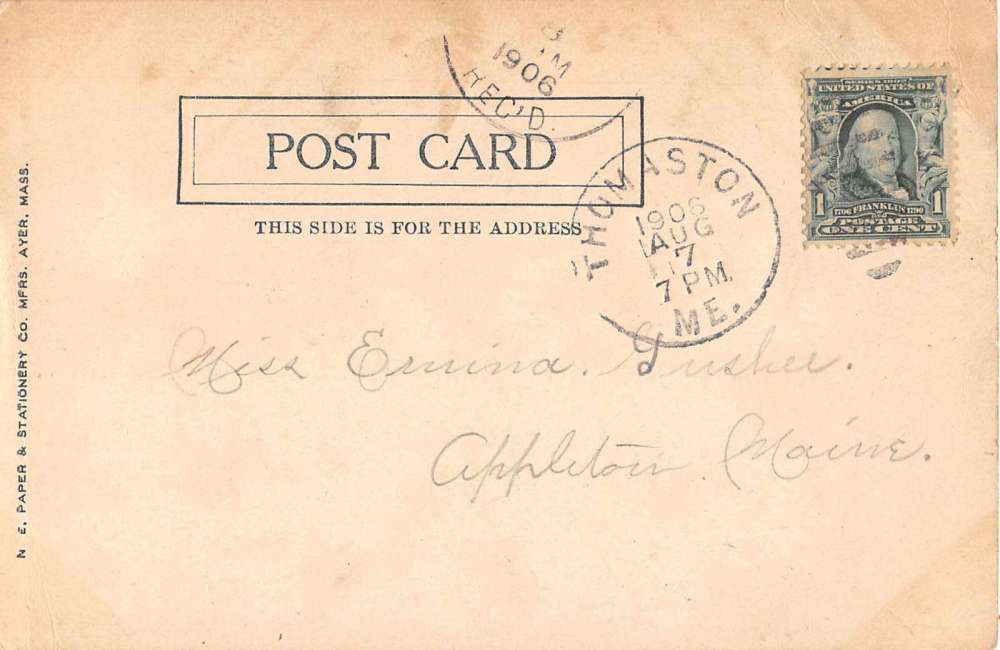 8
M
1906
REC'D.
POST CARD
THIS SIDE IS FOR THE ADDRESS
SERIES 1902
UNITED STATES OF
AMERICA
1 1706 FRANKLIN 1790 1
POSTAGE
ONE CENT
THOMASTON
1906
AUG
17
7 PM.
ME.
Miss Ermina. Gusher.
Appleton Maine.
N. E. PAPER & STATIONERY CO. MFRS. AYER, MASS.